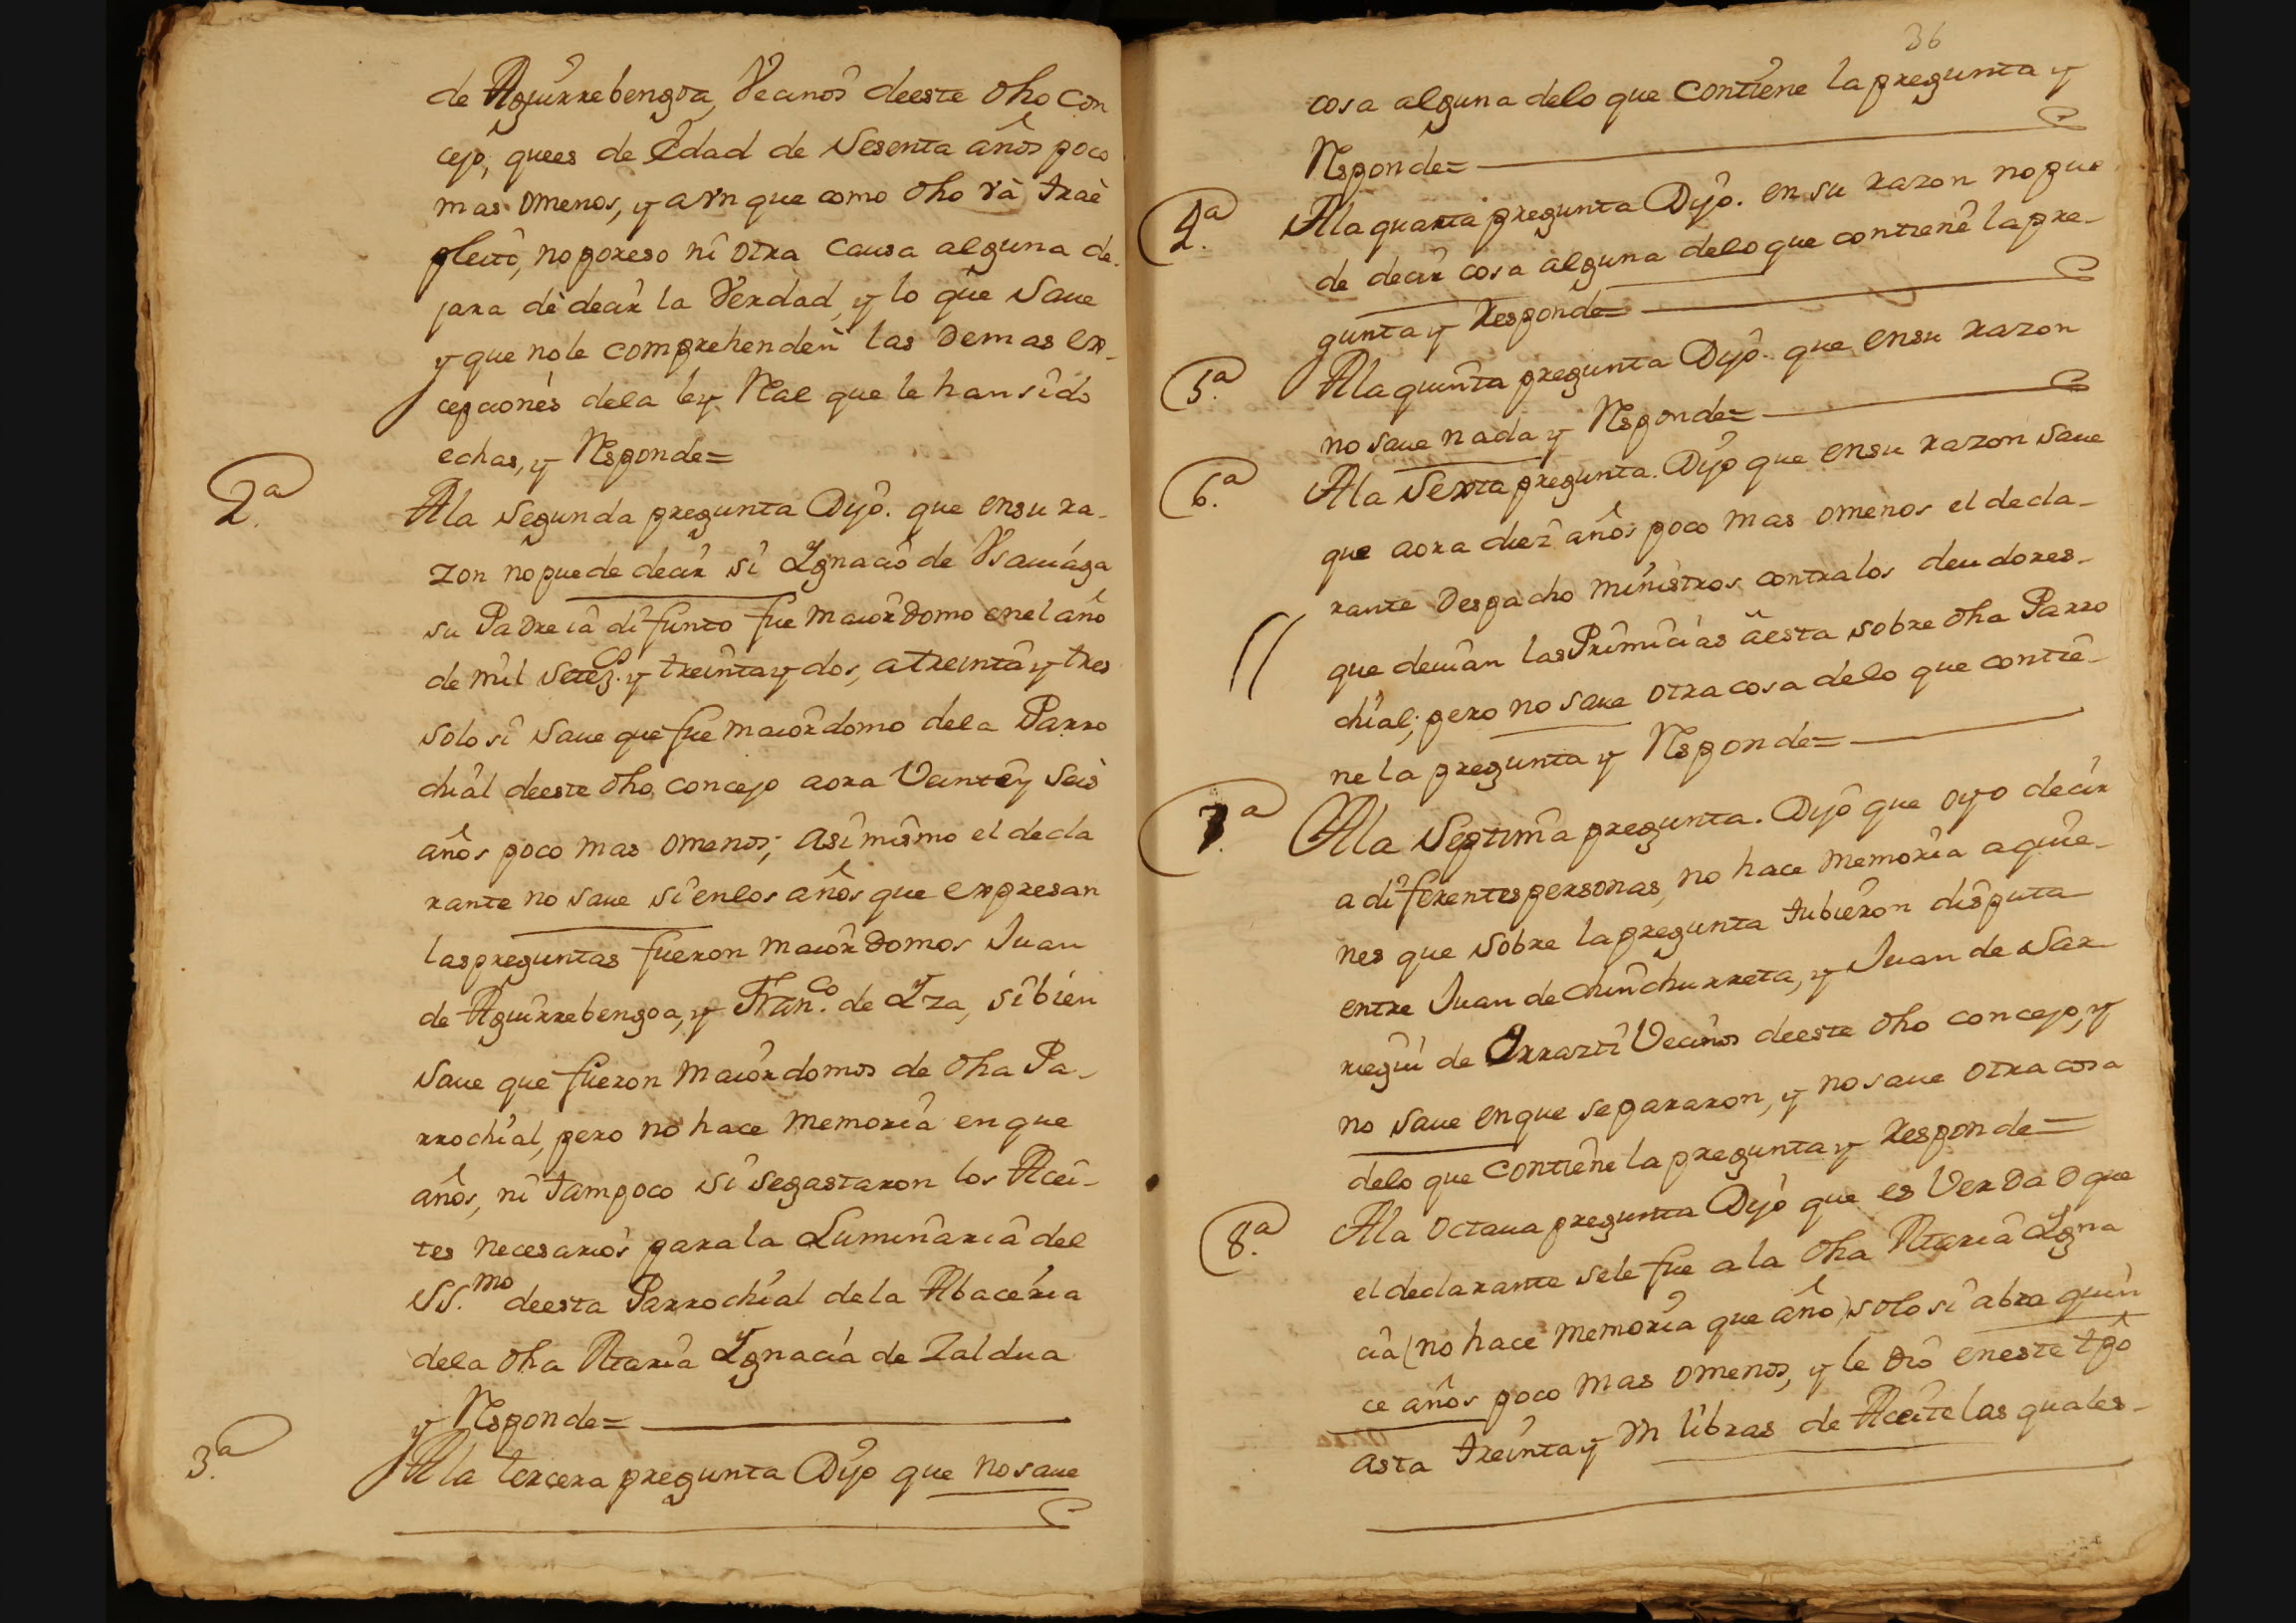 de Aguirrebengoa, Vecinos deeste dho con
cejo, quees de Edad de Sesenta años poco
mas omenos, y aunque como dho va trae
pleito, no poreso ni otra causa alguna de-
jara de decir la Verdad, y lo que Saue
y que nole comprehenden las Demas ex-
cepciones dela ley Real que le han sido
echas, y Responde=
2.ª
Ala Segunda pregunta Dijo. que ensu ra-
zon nopuede decir si Ygnacio de Vsauiaga
su Padre ia difunto fue maiordomo enel año
de mil Setez.ᵒˢ y treinta y dos, atreinta y tres
solo si saue que fue maiordomo dela Parro
chial deeste dho concejo aora Veinte y Seis
años poco mas omenos; asimismo el decla
rante no saue si enlos años que expresan
laspreguntas fueron maiordomos Juan
de Aguirrebengoa, y Fran.ᶜᵒ de Yza, sibien
saue que fueron maiordomos de dha Pa-
rrochial, pero no hace memoria en que
años, ni tampoco si segastaron los Acei-
tes necesarios para la Luminaria del
SS.ᵐᵒ deesta Parrochial de la Abaceria
dela dha Maria Ygnacia de Zaldua
y Responde=
3.ª
Ala tercera pregunta Dijo que no saue
36
cosa alguna delo que contiene la pregunta y
Responde=
4.ª
Ala quarta pregunta Dijo. en su razon no pue
de decir cosa alguna delo que contiene la pre-
gunta y Responde=
5.ª
Ala quinta pregunta Dijo. que ensu razon
no saue nada y Responde=
6.ª
Ala Sexta pregunta. Dijo que ensu razon saue
que aora diez años poco mas omenos el decla-
rante Despacho ministros contralos deudores-
que deuian las Primicias aesta sobre dha Parro
chial; pero no saue otra cosa delo que contie-
ne la pregunta y Responde=
7.ª
Ala Septima pregunta. Dijo que oyo decir
a diferentes personas, no hace memoria aquie-
nes que sobre la pregunta tubieron disputa
entre Juan de chinchurreta, y Juan de Sar
riegui de Arrazti Vecinos deeste dho concejo, y
no saue enque separaron, y no saue otra cosa
delo que contiene la pregunta y Responde=
8.ª
Ala octaua pregunta Dijo que es Verdad que
el declarante sele fue a la dha Maria Ygna
cia (no hace memoria que año) solo si abra quin
ce años poco mas omenos, y le dio eneste tpo
asta treinta y un libras de Aceite las quales-